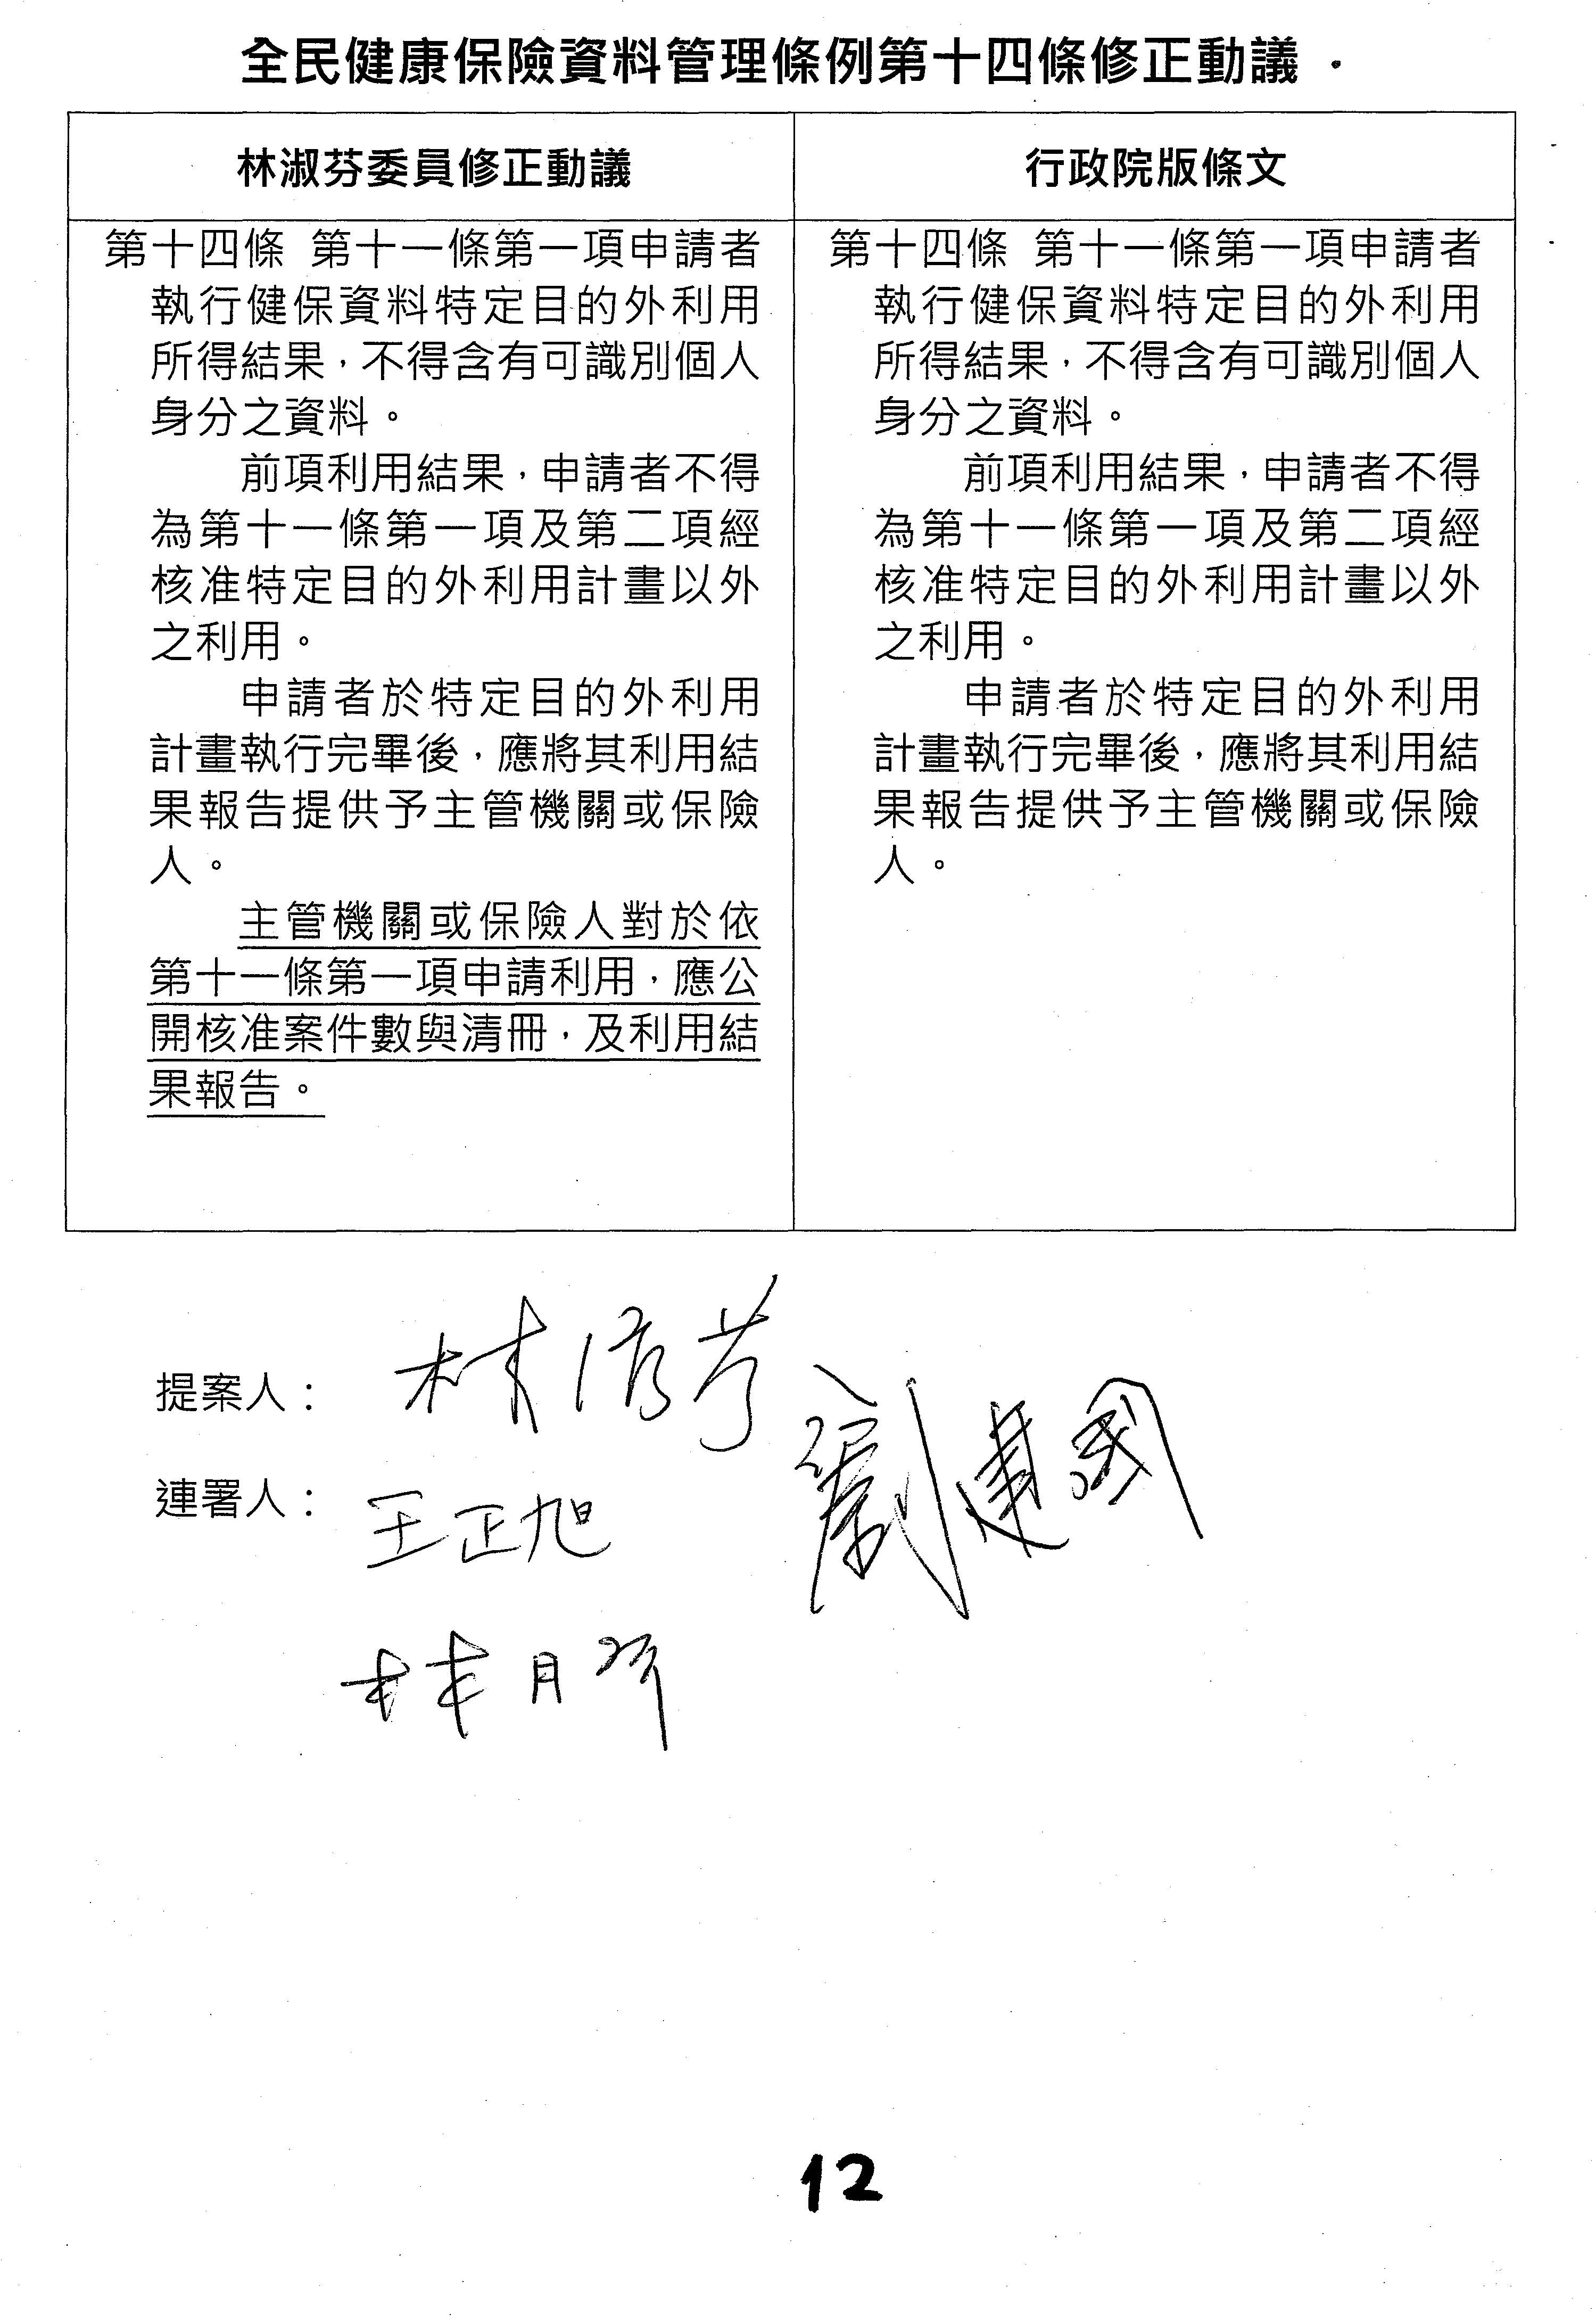 全民健康保險資料管理條例第十四條修正動議
林淑芬委員修正動議
行政院版條文
第十四條 第十一條第一項申請者
執行健保資料特定目的外利用
所得結果，不得含有可識別個人
身分之資料。
前項利用結果，申請者不得
為第十一條第一項及第二項經
核准特定目的外利用計畫以外
之利用。
申請者於特定目的外利用
計畫執行完畢後，應將其利用結
果報告提供予主管機關或保險
人。
主管機關或保險人對於依
第十一條第一項申請利用，應公
開核准案件數與清冊，及利用結
果報告。
第十四條 第十一條第一項申請者
執行健保資料特定目的外利用
所得結果，不得含有可識別個人
身分之資料。
前項利用結果，申請者不得
為第十一條第一項及第二項經
核准特定目的外利用計畫以外
之利用。
申請者於特定目的外利用
計畫執行完畢後，應將其利用結
果報告提供予主管機關或保險
人。
提案人： 林淑芬
連署人： 王正旭 劉建國
林月琴
12